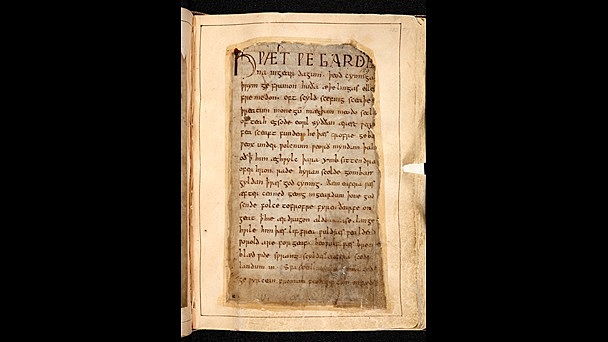 HǷÆT ǷE GARDE
na in gear dagum. þeod cyninga
þrym ge frunon huða æþelingas elle
fre medon. oft scyld scefing sceaþe
þreatum monegū mægþum meodo setla
of teah egsode eorl syððan ærest ƿear
fea sceaft funden he þæs frofre geba
ƿeox under ƿolcnum ƿeorð myndum þah
oð ꝥ him æghƿylc þara ymb sittendra
ofer hron rade hyran scolde gomban
gyldan ꝥ ƿæs god cyning. ðæm eafera ƿæs
æfter cenned geong in geardum þone god
sende folce tofrofre fyren ðearfe on
geat ꝥ hie ær drugon aldor ase. lange
hƿile him þæs lif frea ƿuldres ƿealdend
ƿorold are for geaf. beoƿulf ƿæs breme
blæd ƿide sprang scyldes eafera scede
landum in. Sƿa sceal
ge ƿyrcean fromum feoh giftum